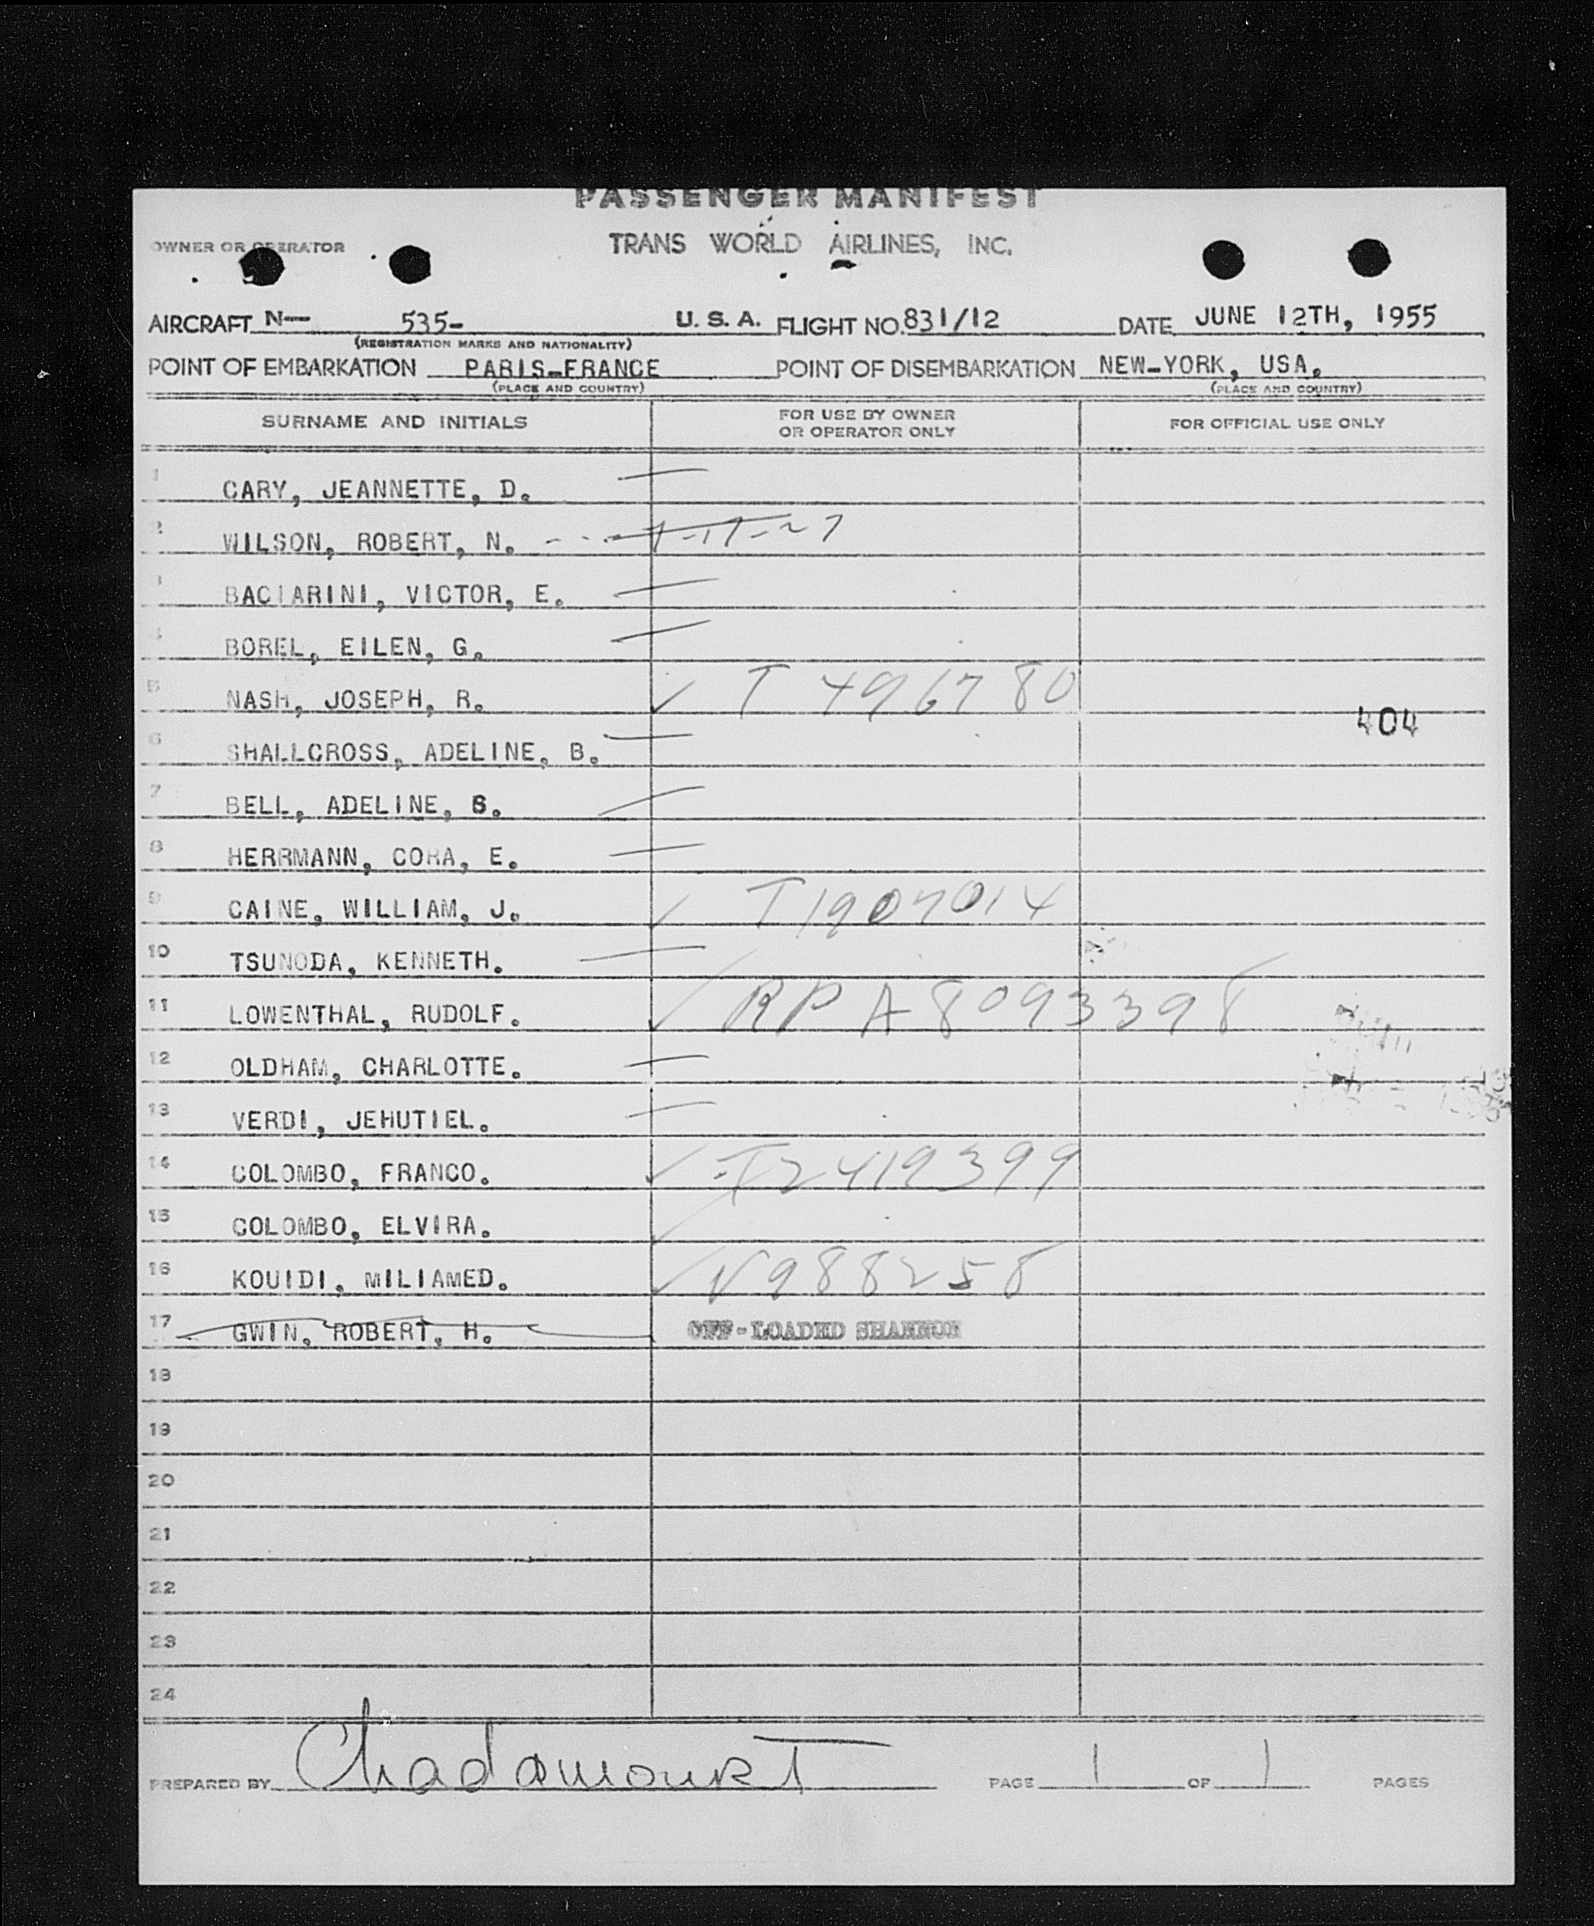 PASSENGER MANIFEST
OWNER OR OPERATOR TRANS WORLD AIRLINES, INC.
AIRCRAFT N— 535- U. S. A. FLIGHT NO. 831/12 DATE JUNE 12TH, 1955
(REGISTRATION MARKS AND NATIONALITY)
POINT OF EMBARKATION PARIS-FRANCE POINT OF DISEMBARKATION NEW-YORK, USA.
(PLACE AND COUNTRY) (PLACE AND COUNTRY)
SURNAME AND INITIALS FOR USE BY OWNER OR OPERATOR ONLY FOR OFFICIAL USE ONLY
1 CARY, JEANNETTE, D.
2 WILSON, ROBERT, N.
3 BACIARINI, VICTOR, E.
4 BOREL, EILEN, G.
5 NASH, JOSEPH, R. ✓ T 496780
404
6 SHALLCROSS, ADELINE, B.
7 BELL, ADELINE, S.
8 HERRMANN, CORA, E.
9 CAINE, WILLIAM, J. ✓ T1907014
10 TSUNODA, KENNETH.
11 LOWENTHAL, RUDOLF. ✓ RP A8093398
12 OLDHAM, CHARLOTTE.
13 VERDI, JEHUTIEL.
14 COLOMBO, FRANCO. ✓ I2419399
15 COLOMBO, ELVIRA. ✓
16 KOUIDI, MILIAMED. ✓ V988258
17 GWIN, ROBERT, H. OFF-LOADED SHANNON
18
19
20
21
22
23
24
PREPARED BY PAGE 1 OF 1 PAGES